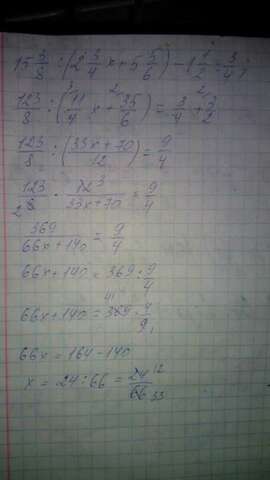 15 3/8 : (2 3/4 x + 5 5/6) - 1 1/2 = 3/4;
123/8 : (11/4 x + 35/6) = 3/4 + 3/2
123/8 : (33x + 70)/12 = 9/4
123/8 · 12/(33x + 70) = 9/4
369/(66x + 140) = 9/4
66x + 140 = 369 : 9/4
66x + 140 = 369 · 4/9
66x = 164 - 140
x = 24 : 66 = 24/66 12 33